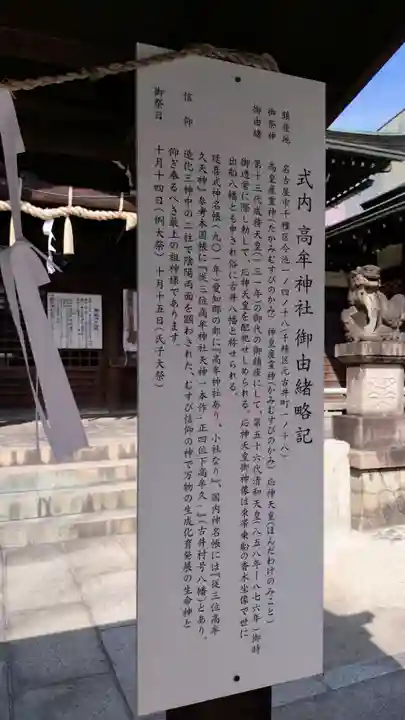 式内 高牟神社 御由緒略記
鎮座地 名古屋市千種区今池一ノ四ノ十八(千種区元古井町一ノ十八)
御祭神 高皇産霊神(たかみむすびのかみ) 神皇産霊神(かみむすびのかみ) 応神天皇(ほんだわけのみこと)
御由緒 第十三代成務天皇(一三一年)の御代の御鎮座にして、第五十六代清和天皇(八五八年ー八七六年)御時
御造営に際し勅して、応神天皇を配祀せしめられる。応神天皇御神像は束帯乗船の香木坐像で世に
出船八幡とも申され俗に古井八幡と称せられる。
延喜式神名帳(九〇一年)愛知郡の部に『高牟神社あり、小社なり』、国内神名帳には『従三位高牟
久天神』参考本国帳に『従三位高牟神社天神一本作」正四位下高牟久」』(古井村号八幡)とあり、
信仰 造化三神中の二社で陰陽両面を顕わされた、むすび信仰の神で万物の生成化育発展の生命神と
仰ぎ奉るべき最上の祖神様であります。
御祭日 十月十四日(例大祭) 十月十五日(氏子大祭)